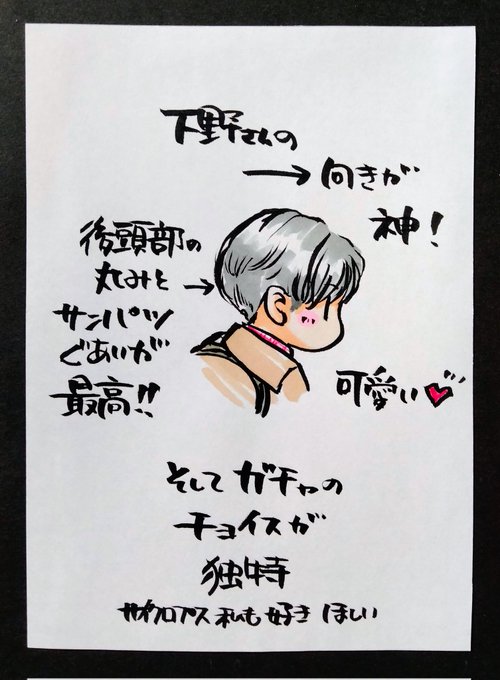 下野さんの
→ 向きが
神!
後頭部の
丸みと→
サンパツ
ぐあいが
最高!!
可愛い♥
そしてガチャの
チョイスが
独特
サイクロプス 私も好き ほしい